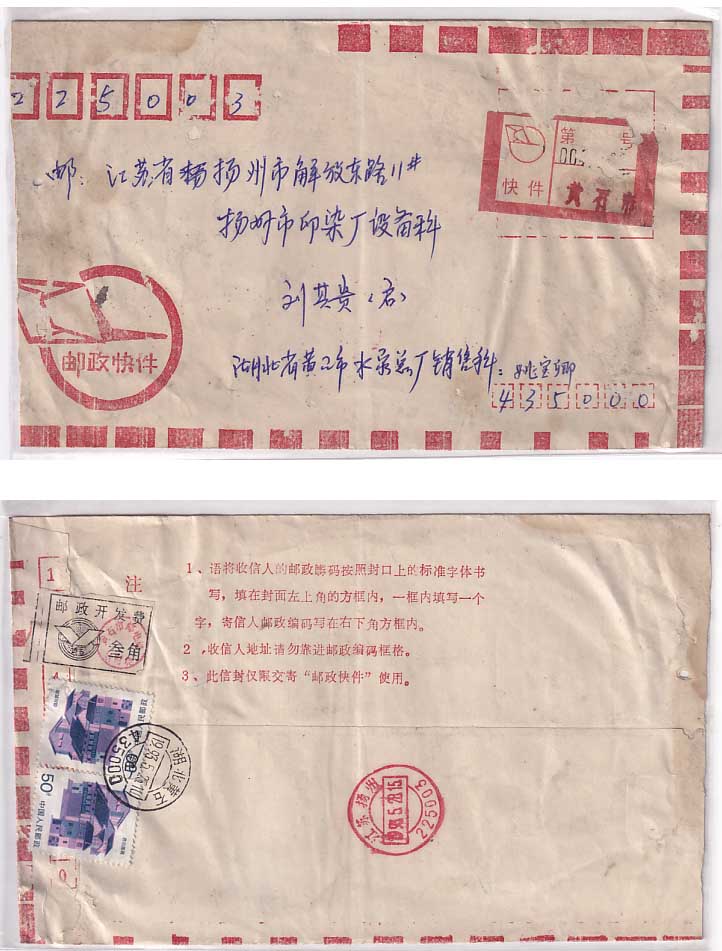 225003
邮: 江苏省扬州市解放东路11#
扬州市印染厂设备科
刘其贵(启)
第 号
快件
黄石
邮政快件
湖北省黄石市水泵总厂销售科:姚宝卿
435000
1
注
1、语将收信人的邮政编码按照封口上的标准字体书
写,填在封面左上角的方框内,一框内填写一个
字,寄信人邮政编码写在右下角方框内。
2,收信人地址请勿靠进邮政编码框格。
3、此信封仅限交寄“邮政快件”使用。
邮政开发费
叁角
50分
中国人民邮政
湖北黄石
435000
江苏扬州
225003
0